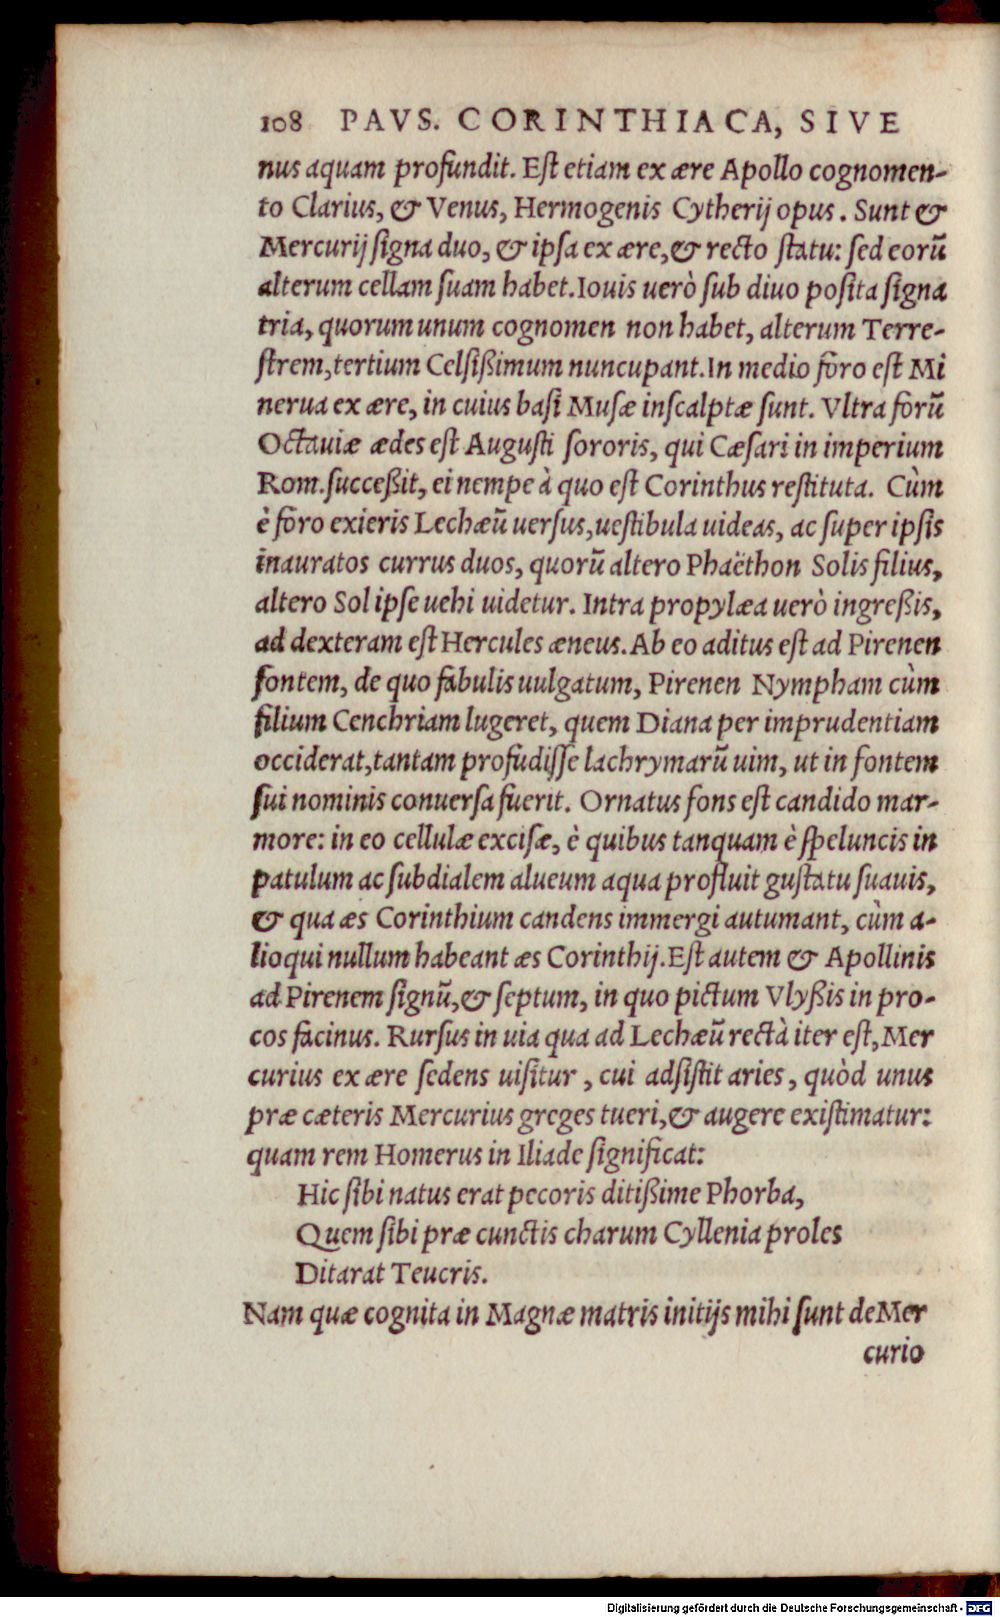 108 PAVS. CORINTHIACA, SIVE
nus aquam profundit. Est etiam ex ære Apollo cognomen-
to Clarius, & Venus, Hermogenis Cytherij opus. Sunt &
Mercurij signa duo, & ipsa ex ære, & recto statu: sed eorũ
alterum cellam suam habet. Iouis uerò sub diuo posita signa
tria, quorum unum cognomen non habet, alterum Terre-
strem, tertium Celsißimum nuncupant. In medio foro est Mi
nerua ex ære, in cuius basi Musæ inscalptæ sunt. Vltra forũ
Octauiæ ædes est Augusti sororis, qui Cæsari in imperium
Rom. succeßit, ei nempe à quo est Corinthus restituta. Cùm
è foro exieris Lechæũ uersus, uestibula uideas, ac super ipsis
inauratos currus duos, quorũ altero Phaëthon Solis filius,
altero Sol ipse uehi uidetur. Intra propylæa uerò ingreßis,
ad dexteram est Hercules æneus. Ab eo aditus est ad Pirenen
fontem, de quo fabulis uulgatum, Pirenen Nympham cùm
filium Cenchriam lugeret, quem Diana per imprudentiam
occiderat, tantam profudisse lachrymarũ uim, ut in fontem
sui nominis conuersa fuerit. Ornatus fons est candido mar-
more: in eo cellulæ excisæ, è quibus tanquam è speluncis in
patulum ac subdialem alueum aqua profluit gustatu suauis,
& qua æs Corinthium candens immergi autumant, cùm a-
lioqui nullum habeant æs Corinthij. Est autem & Apollinis
ad Pirenem signũ, & septum, in quo pictum Vlyßis in pro-
cos facinus. Rursus in uia qua ad Lechæũ rectà iter est, Mer
curius ex ære sedens uisitur, cui adsistit aries, quòd unus
præ cæteris Mercurius greges tueri, & augere existimatur:
quam rem Homerus in Iliade significat:
Hic sibi natus erat pecoris ditißime Phorba,
Quem sibi præ cunctis charum Cyllenia proles
Ditarat Teucris.
Nam quæ cognita in Magnæ matris initijs mihi sunt de Mer
curio
Digitalisierung gefördert durch die Deutsche Forschungsgemeinschaft - DFG